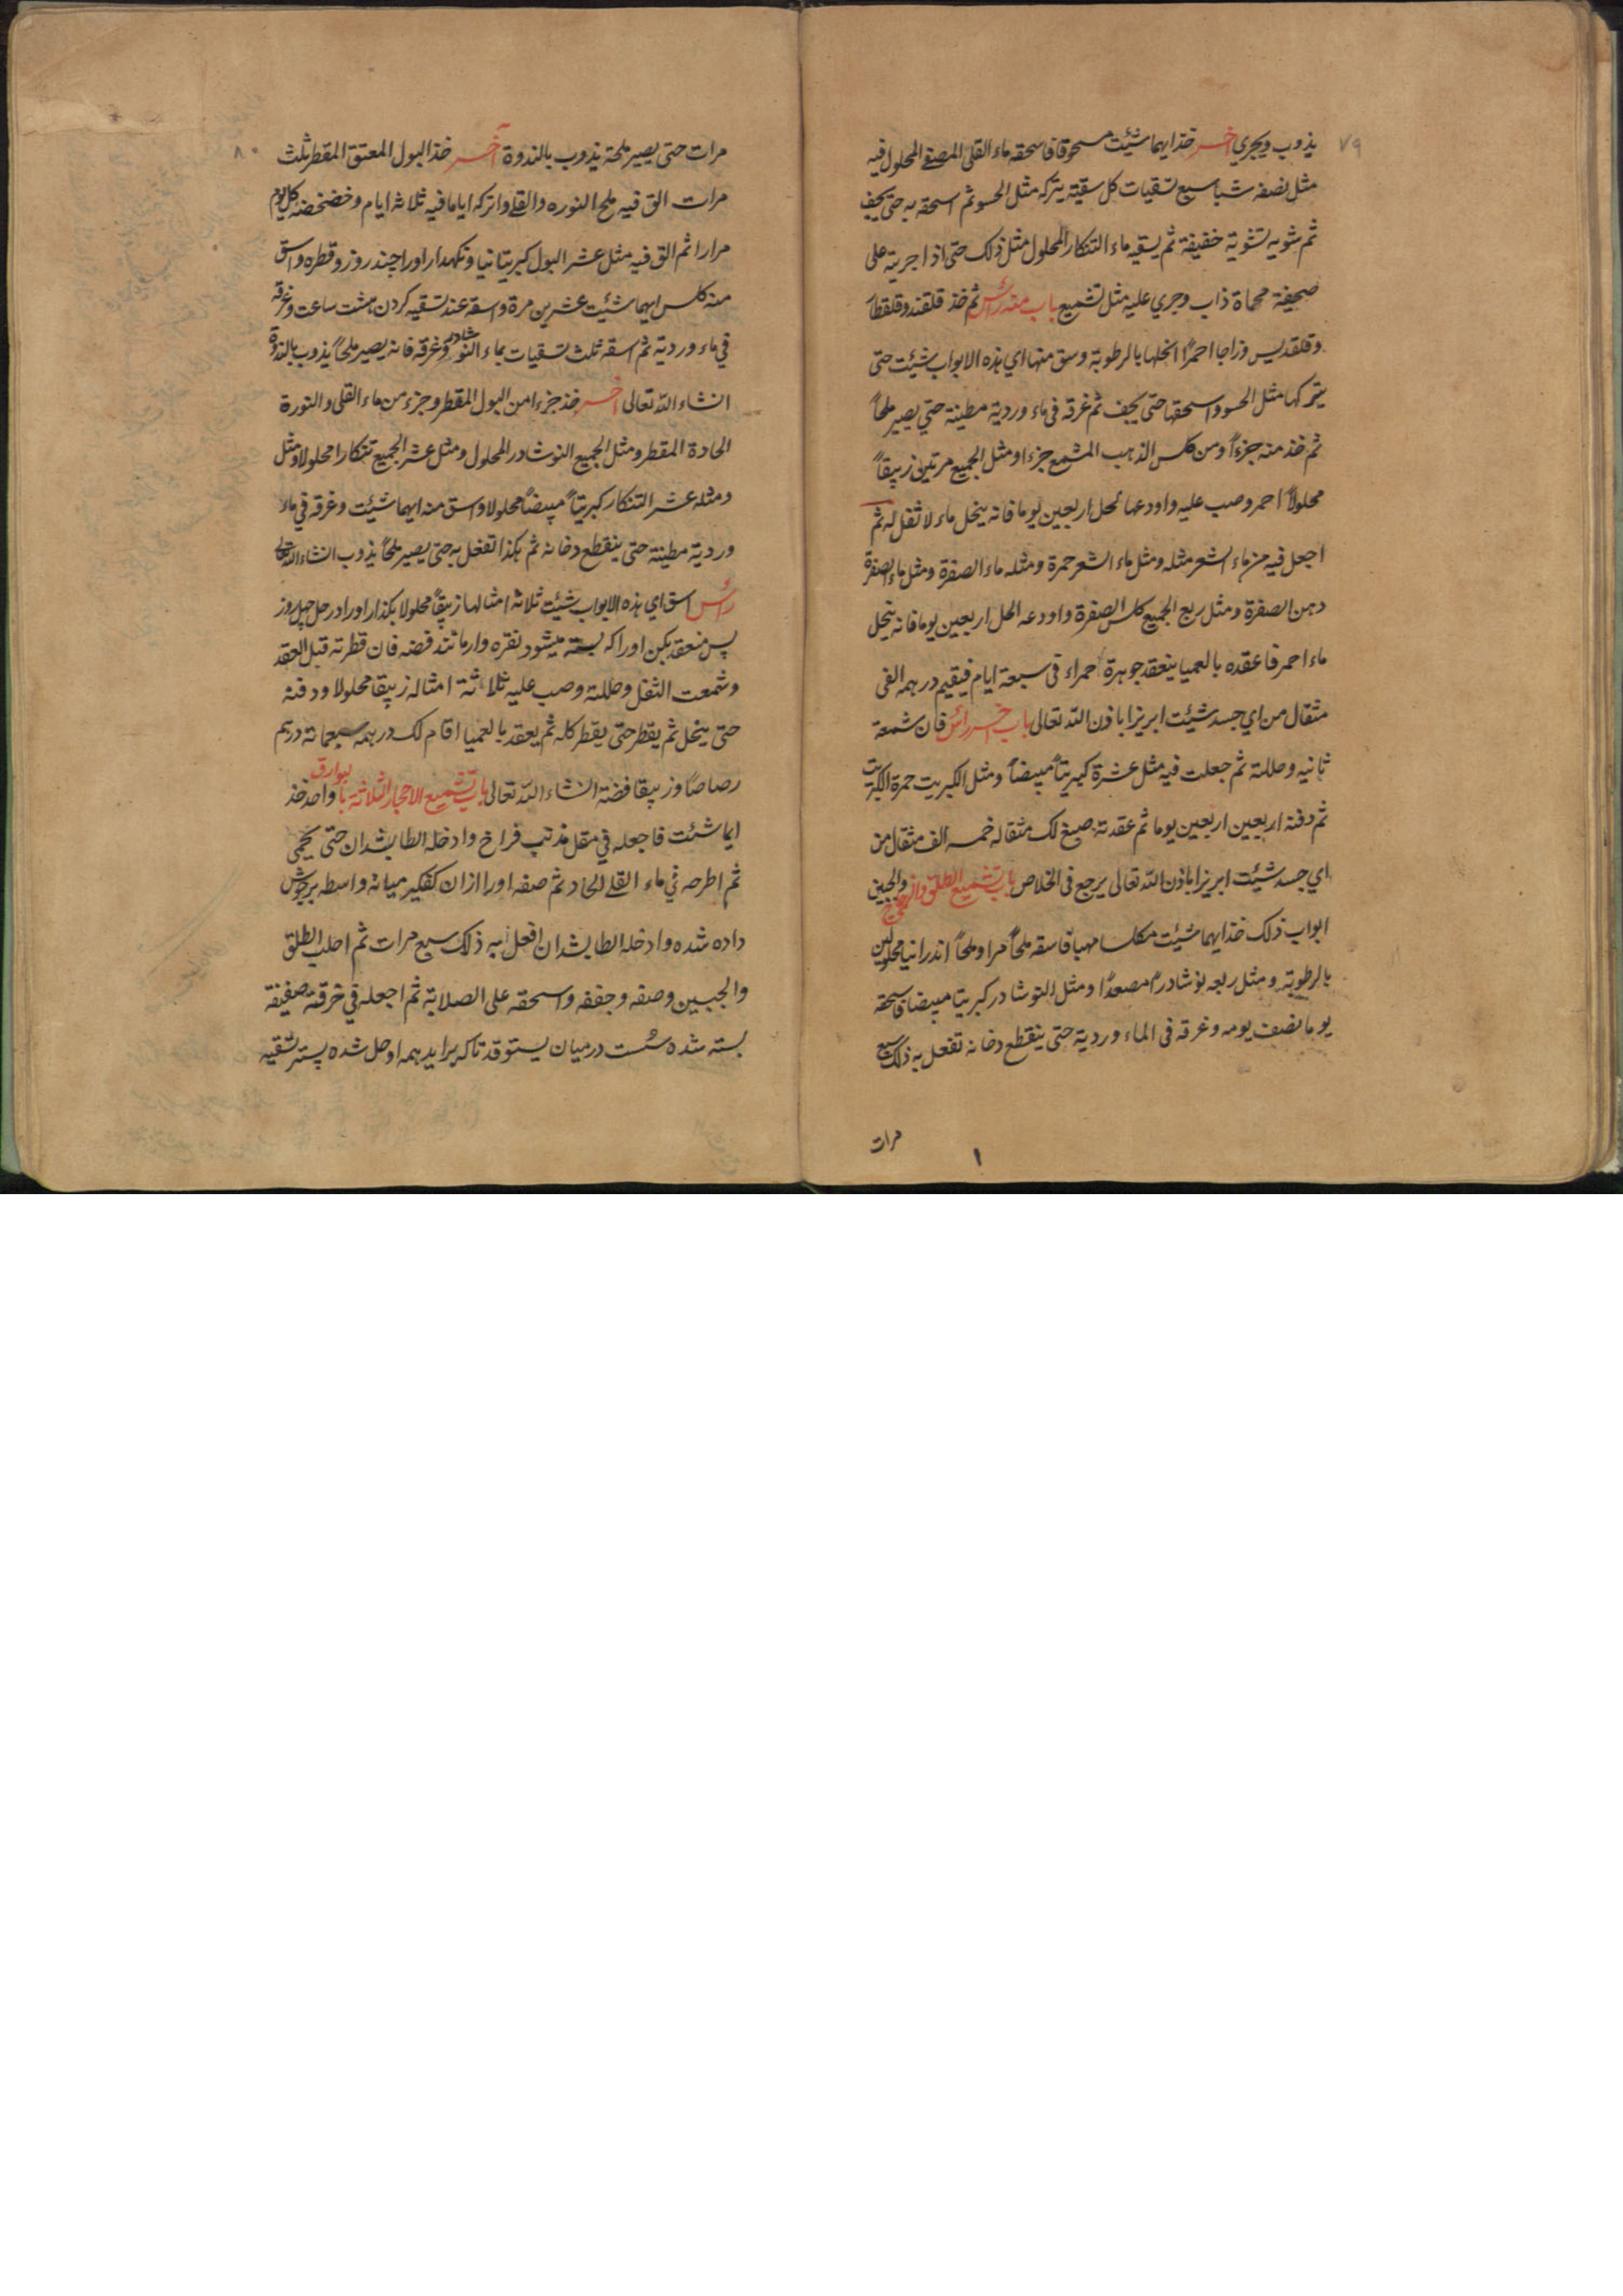 ٧٩
يذوب ويجري آخر خذ ايهما شئت مسحوقا فاسحقه ماء القلى المصفى المحلول فيه
مثل نصفه شبا سبع تسقيات كل سقية يتركه مثل الحسو ثم اسحقه به حتى يجف
ثم شويه تشوية خفيفة ثم يسقيه ماء التنكار المحلول مثل ذلك حتى اذا اجريته على
صحيفة محماة ذاب وجرى عليه مثل تشميع باب منه رأس ثم خذ قلقند وقلقطار
وقلقديس وزاجا احمرًا انخلها بالرطوبة وسق منها اي هذه الابواب شئت حتى
يتركها مثل الحسو واسحقها حتى يجف ثم غرقه في ماء وردية مطينة حتي يصير ملحاً
ثم خذ منه جزءاً ومن كلس الذهب المشمع جزءا ومثل الجميع مرتين زيبقاً
محلولاً احمر وصب عليه واودعها لحل اربعين يوما فانه ينحل ماء لا ثفل له ثم
اجعل فيه من ماء الشعر مثله ومثل ماء الشعر حمرة ومثله ماء الصفرة ومثل ماء الصفرة
دهن الصفرة ومثل ربع الجميع كلس الصفرة واودعه الحل اربعين يوما فانه ينحل
ماء احمر فاعقده بالعميا ينعقد جوهرة حمراء في سبعة ايام فيقيم درهمه الفي
مثقال من اي جسد شئت ابريزا باذن اللّه تعالى باب آخر رأس فان شمعة
ثانيه وحللته ثم جعلت فيه مثل عشرة كبريتاً مبيضاً ومثل الكبريت حمرة الكبريت
ثم دفنه اربعين اربعين يوما ثم عقدته صبغ لك مثقاله خمسه الف مثقال من
اي جسد شئت ابريزا باذن اللّه تعالى يرجع في الخلاص باب تشميع الطلق والزجاج والجبين
ابواب ذلك خذ ايهما شئت مكلسا مهبا فاسقه ملحاً مرا وملحاً اندرانيا محلولين
بالرطوبة ومثل ربعه نوشادراً مصعداً ومثل النوشادر كبريتا مبيضا فاسحقه
يوما نصف يومه وغرقه في الماء وردية حتى ينقطع دخانه تفعل به ذلك سبع
مرات
١
٨٠
مرات حتى يصير ملحة يذوب بالندوة آخر خذ البول المعتق المقطر ثلث
مرات الق فيه ملح النوره والقلى واتركه اياما فيه ثلاثه ايام وخضخضه كل يوم
مرارا ثم الق فيه مثل عشر البول كبريتا نيا ونكهدار اورا چند روز وقطره واسق
منه كلس ايهما شئيت عشرين مرة واسقه عند تسقيه كردن هشت ساعت وغرقه
في ماء وردية ثم اسقه ثلث تسقيات بماء النوشادر وغرقه فانه يصير ملحاً يذوب بالندوة
انشاء اللّه تعالى آخر خذ جزءا من البول المقطر وجزء من ماء القلى والنورة
الحادة المقطر ومثل الجميع النوشادر المحلول ومثل عشر الجميع تنكارا محلولا ومثل
ومثله عشر التنكار كبريتاً مبيضاً محلولا واسق منه ايهما شئيت وغرقه في ماء
وردية مطينة حتى ينقطع دخانه ثم هكذا تفعل به حتى يصير ملحاً يذوب انشاء اللّه تعالى
رأس اسق اي هذه الابواب شئيت ثلاثة امثالها زيبقاً محلولا بكذار اورا در حل چهل روز
پس منعقد بكن اورا كه بسته ميشود نقره وار مانند فضه فان قطرته قبل العقد
وشمعت الثفل وحللته وصب عليه ثلاثة امثاله زيبقا محلولا ودفنه
حتى ينحل ثم يقطر حتى يقطر كله ثم يعقد بالعميا اقام لك درهمه سبعمائة درهم
رصاصا وزيبقا فضة انشاء اللّه تعالى باب تشميع الاحجار الثلاثة ببوارق با واحد خذ
ايما شئت فاجعله في مقل فراخ وادخله الطابشدان حتى يحمى
ثم اطرحه في ماء القلى الحاد ثم صفه اورا ازان كفكير ميانه واسطه بر جوش
داده شده وادخله الطابشدان افعل به ذلك سبع مرات ثم احلب الطلق
والجبسين وصفه وجففه واسحقه على الصلاية ثم اجعله في خرقة صفيقة
بسته شده شست درميان يستوقد تاكه برايد همه او حل شده پستر تسقيه